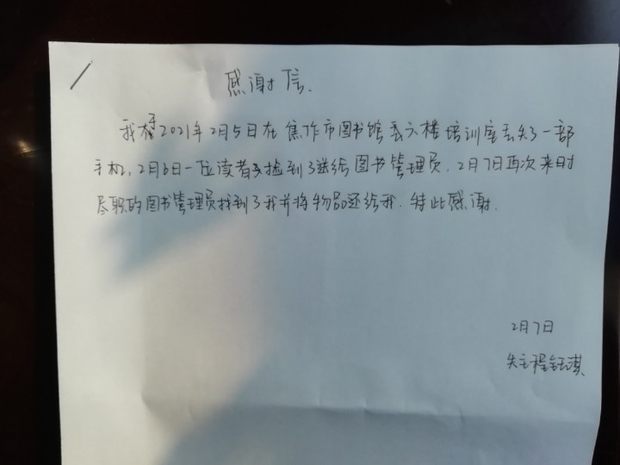 感谢信.
我于2021年2月5日在焦作市图书馆六楼培训室丢失了一部
手机,2月6日一位读者捡到了送给图书管理员,2月7日再次来时
尽职的图书管理员找到了我并将物品还给我.特此感谢.
2月7日
失主程钰淇